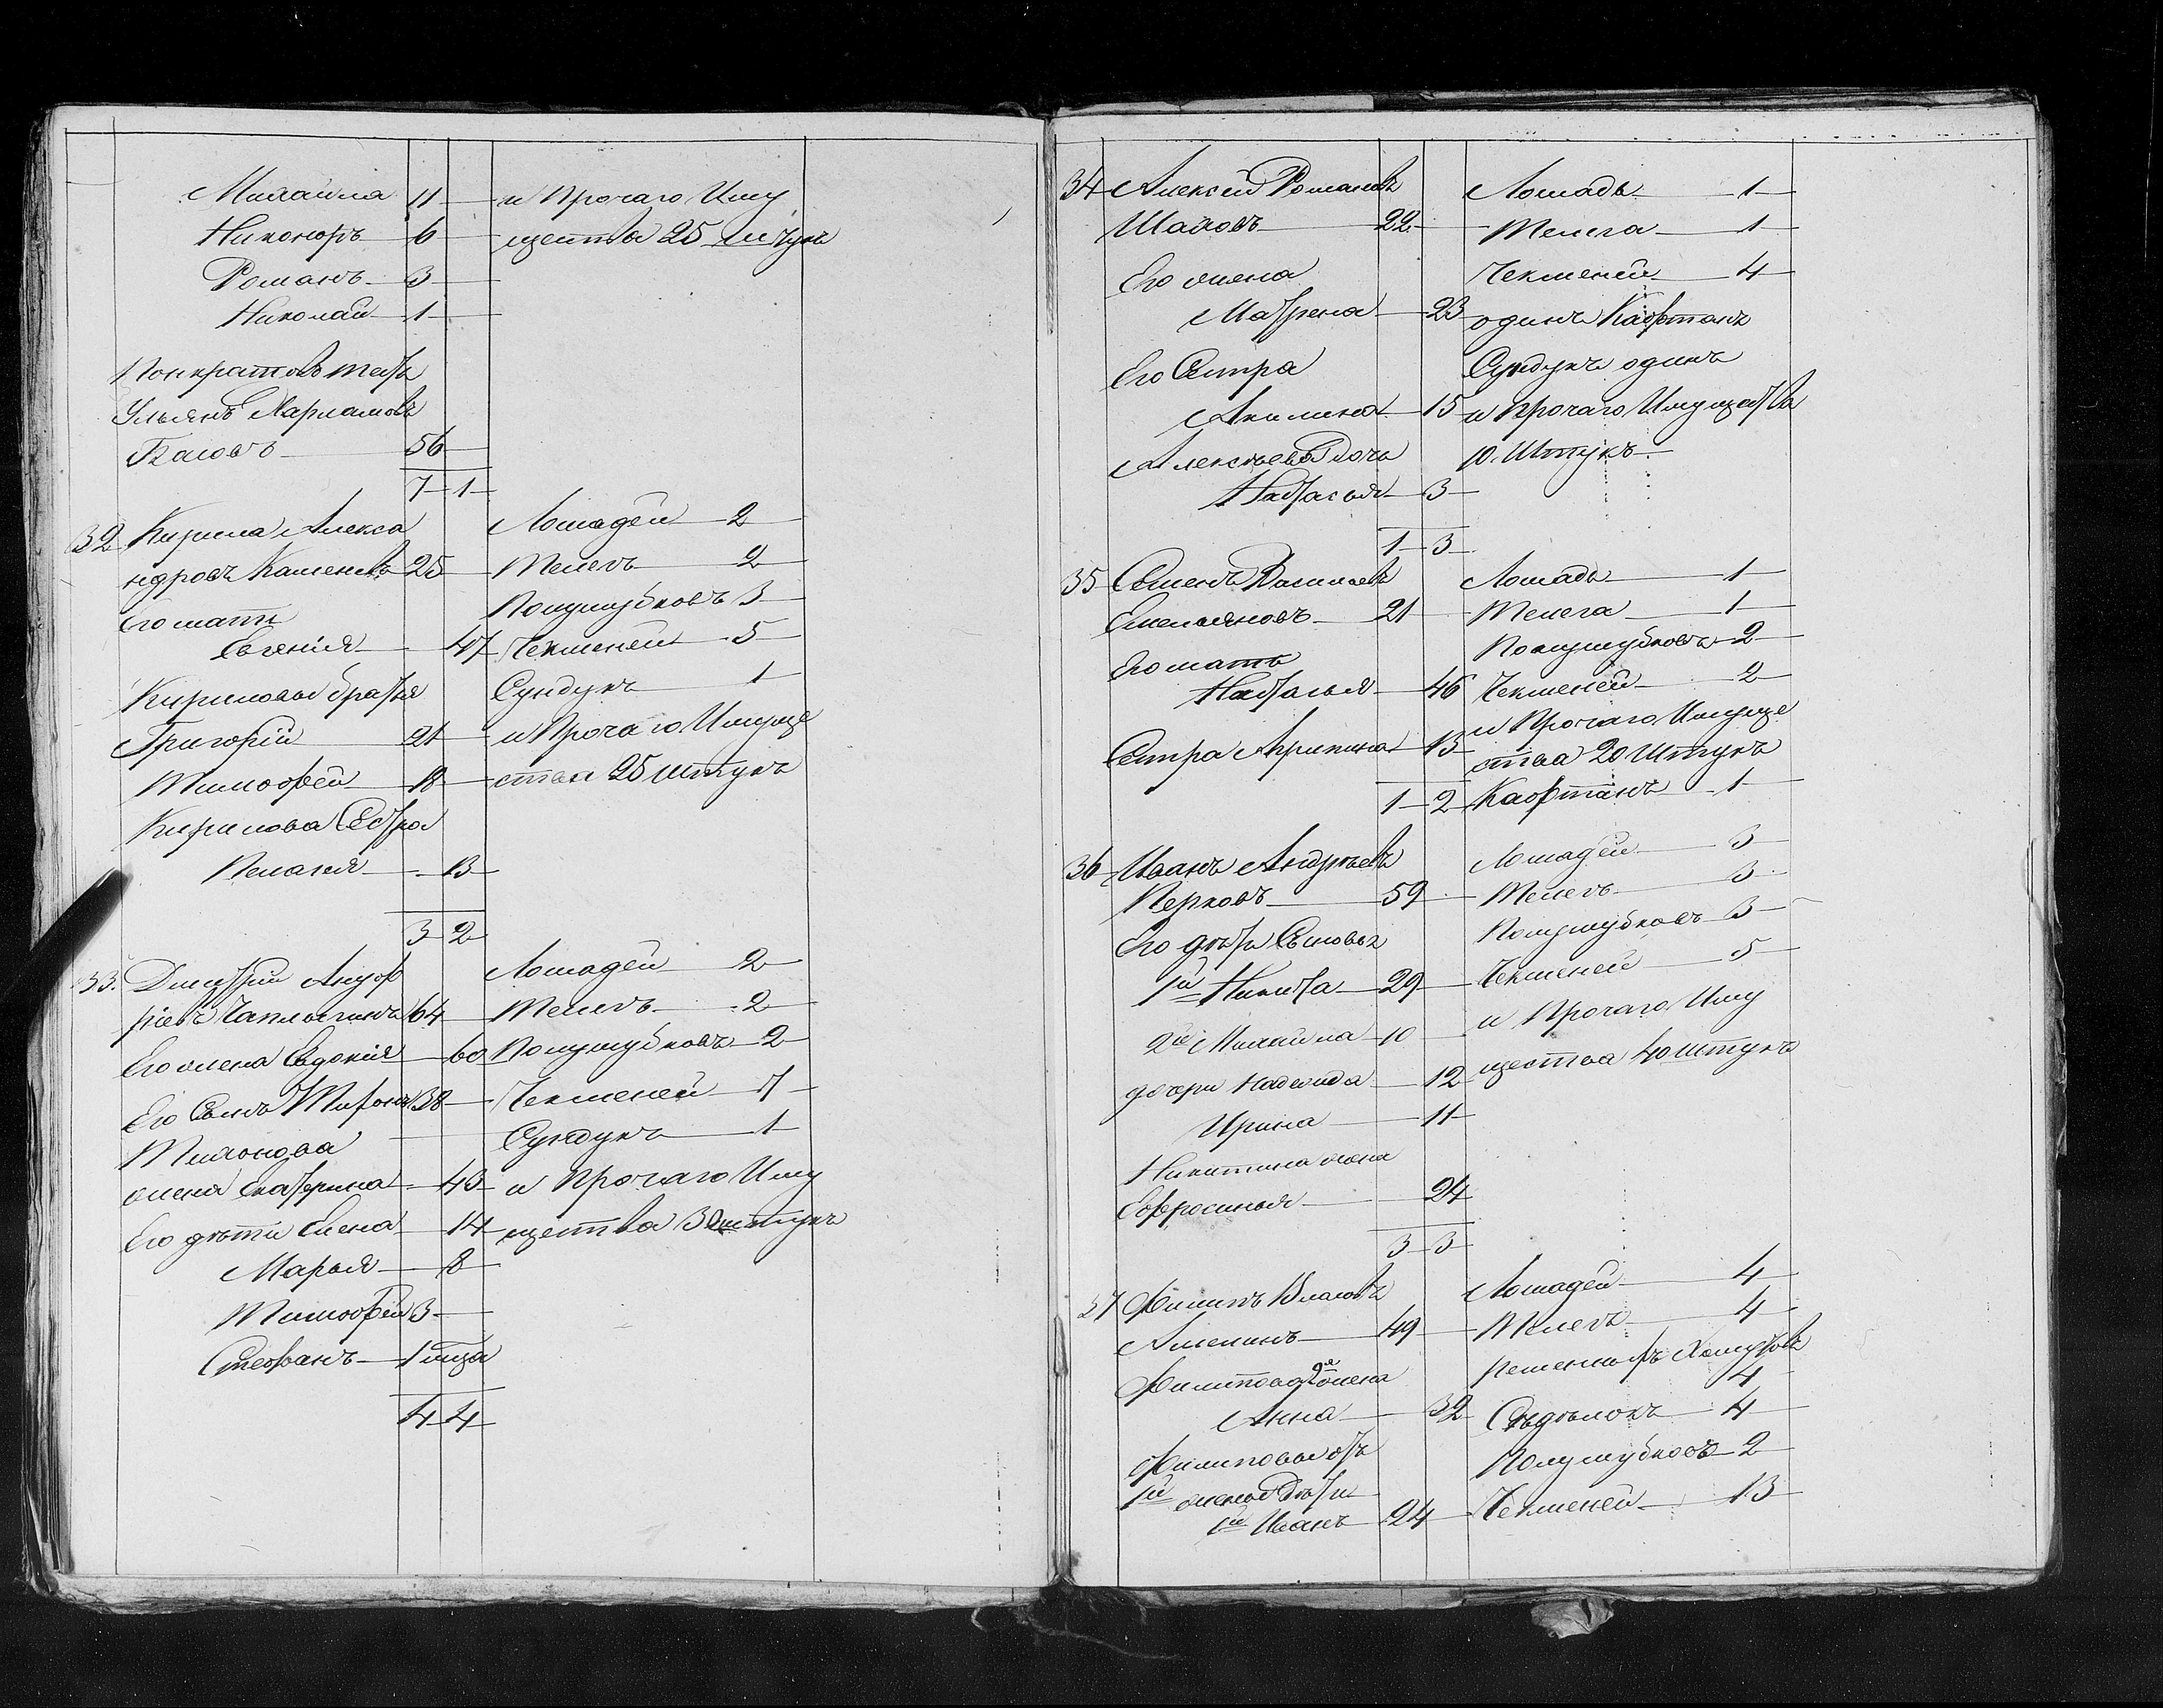 Михайла 11 и Прочаго Иму
Никоноръ 6 щества 25 штукъ
Романъ 3
Николай 1
Понкратовъ тесть
Ульянъ Харламовъ
56
7 1
32 Кирила Алекса Лошадей 2
ндровъ Каменевъ 25 Телегъ 2
Его мать Полушубковъ 3
Евгенія 47 Чекменей 5
Кириловы братья Сундукъ 1
Григорій 21 и Прочаго Имуще
Тимофей 18 ства 25 штукъ
Кирилова Сестра
Пелагея 13
3 2
33. Дмитрій Лошадей 2
Чаплыгинъ 64 Телегъ 2
Его жена Евдокія 60 Полушубковъ 2
Его Сынъ Тихонъ 38 Чекменей 7
Тихонова Сундукъ 1
жена Екатерина 43 и Прочаго Иму
Его дети Елена 14 щества 30 штукъ
Марья 8
Тимофей 3
Стефанъ 1
4 4
34 Алексей Романовъ Лошадь 1
22 Телега 1
Его жена Чекменей 4
Матрена 23 одинъ Кафтанъ
Его Сестра Сундукъ одинъ
Акилина 15 и прочаго Имущества
Алексеева Дочь 10 Штукъ
Настасья 3
1 3
35 Семенъ Васильевъ Лошадь 1
Емельяновъ 21 Телега 1
Его мать Полушубковъ 2
Настасья 46 Чекменей 2
Сестра 13 и Прочаго Имуще
ства 20 Штукъ
1 2 Кафтанъ 1
36 Иванъ Андреевъ Лошадей 3
Перковъ 59 Телегъ 3
Его дети Сыновья Полушубковъ 3
1й Никита 29 Чекменей 5
2й Михайла 10 и Прочаго Иму
дочери Надежда 12 щества 40 штукъ
Ирина 11
Никитина жена
Ефросинья 24
3 3
37 Филипъ Власовъ Лошадей 4
49 Телегъ 4
Филипова 2я жена Хомутовъ
4
Анна 32 Седелокъ 4
Филиповы отъ Полушубковъ 2
1й жены Дети Чекменей 13
1й Иванъ 24